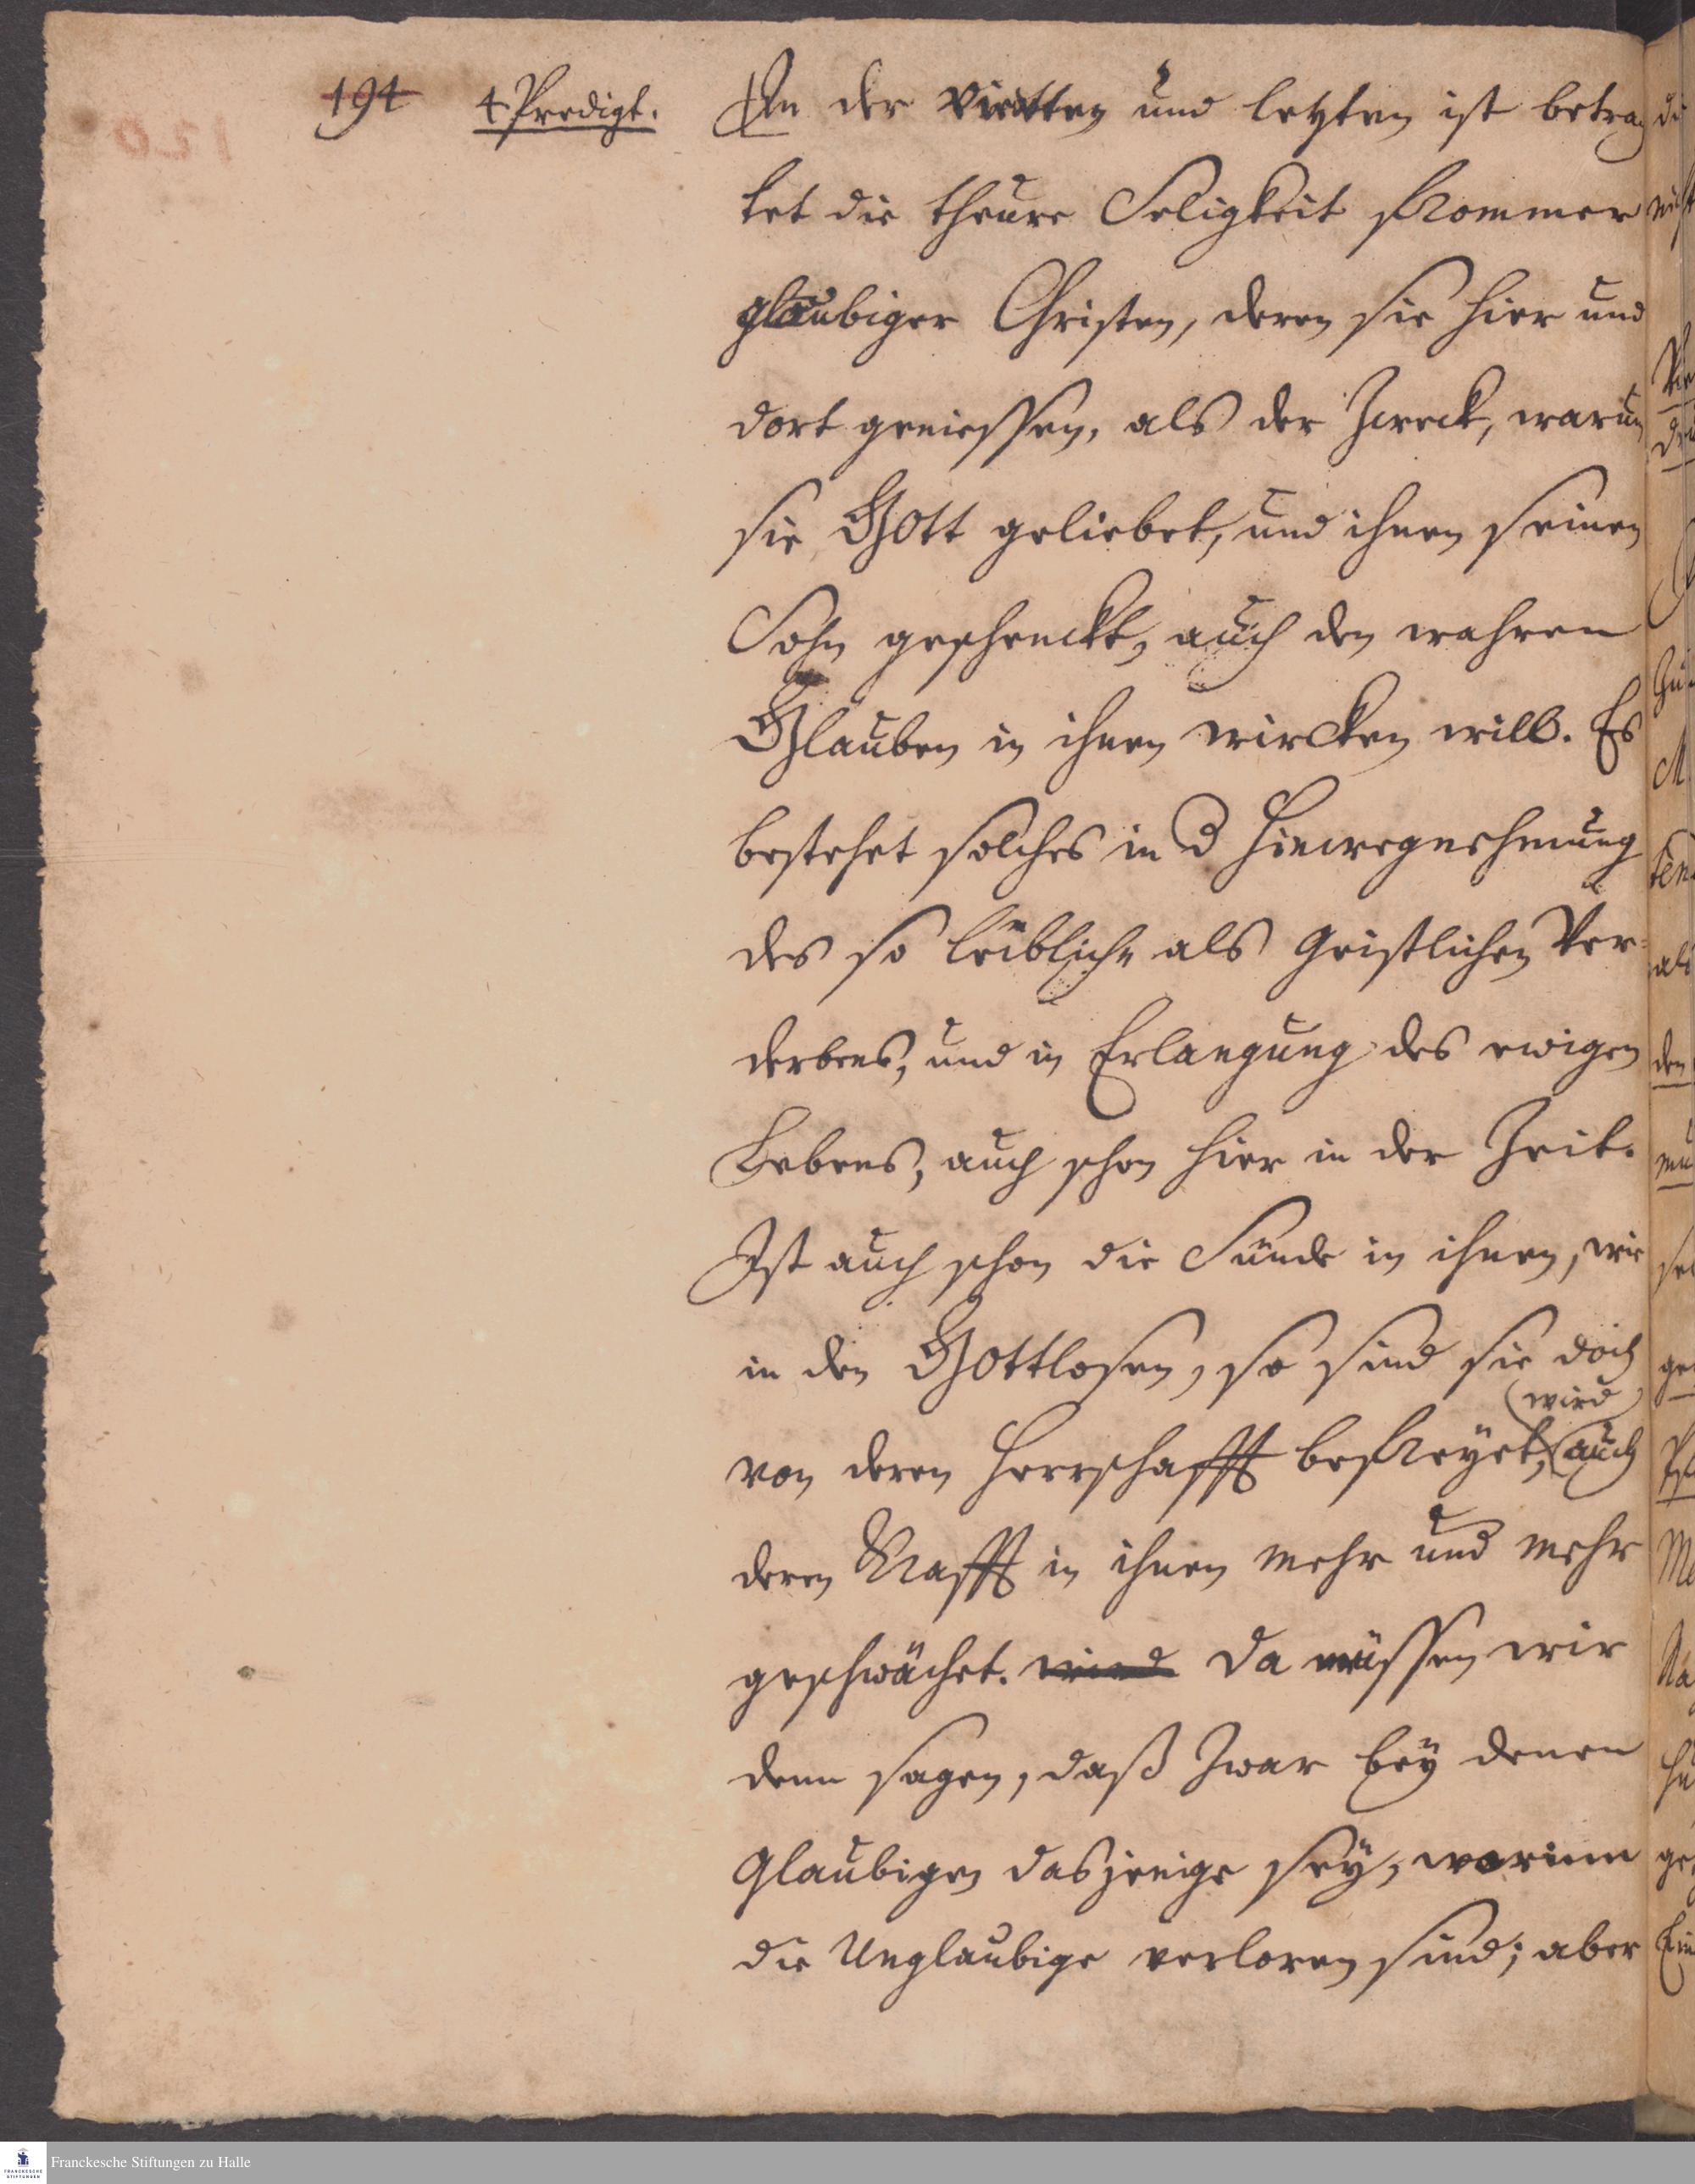 194 4 Predigt.
In der vierdten und letzten ist betrach
tet die theure Seligkeit frommer
glaubiger Christen, deren sie hier und
dort geniessen, als der Zweck, warum
sie Gott geliebet, und ihnen seinen
Sohn geschenckt, auch den wahren
Glauben in ihnen wircken will. Es
bestehet solches in d Hinwegnehmung
des so leiblichen als Geistlichen Ver-
derbens, und in Erlangung des ewigen
Lebens, auch schon hier in der Zeit.
Ist auch schon die Sünde in ihnen, wie
in den Gottlosen, so sind sie doch
von deren Herrschafft befreyet, auch
wird
deren Krafft in ihnen mehr und mehr
geschwächet. wird Da müssen wir
denn sagen, daß zwar bey denen
Glaubigen dasjenige sey, worinn
die Unglaubige verloren sind; aber
Franckesche Stiftungen zu Halle